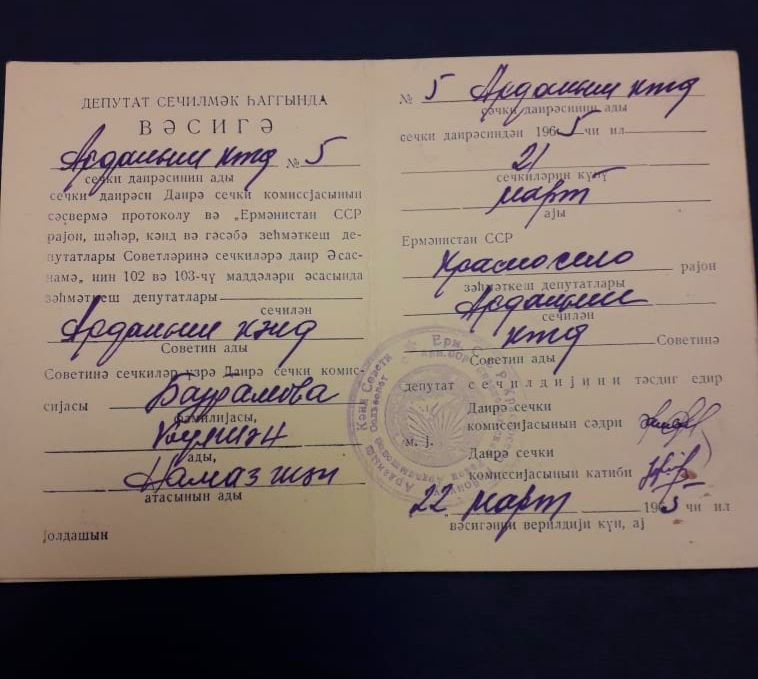 ДЕПУТАТ СЕЧИЛМӘК ҺАГГЫНДА
ВӘСИГӘ
Арданыш ктд № 5
сечки даирәсинин ады
сечки даирәси Даирә сечки комиссјасынын
сәсвермә протоколу вә „Ермәнистан ССР
рајон, шәһәр, кәнд вә гәсәбә зеһмәткеш де-
путатлары Советләринә сечкиләрә даир Әсас-
намә„ нин 102 вә 103-чү маддәләри әсасында
зәһмәткеш депутатлары
сечилән
Арданыш кәнд
Советин ады
Советинә сечкиләр үзрә Даирә сечки комис-
сијасы Баырамова
фамилијасы,
ады,
Намаз гызы
атасынын ады
јолдашын
№ 5 Арданыш ктд
сәчки даирәсинин ады
сечки даирәсиндән 1965 чи ил
21
сечкиләрин күнү
март
ајы
Ермәнистан ССР
Красносело рајон
зәһмәткеш депутатлары
Арданыш
сечилән
ктд Советинә
Советин ады
депутат сечилдијини тәсдиг едир
Даирә сечки
комиссијасынын сәдри
м. ј.
Даирә сечки
комиссијасынын катиби
22 март 1965 чи ил
вәсигәнин верилдији күн, ај